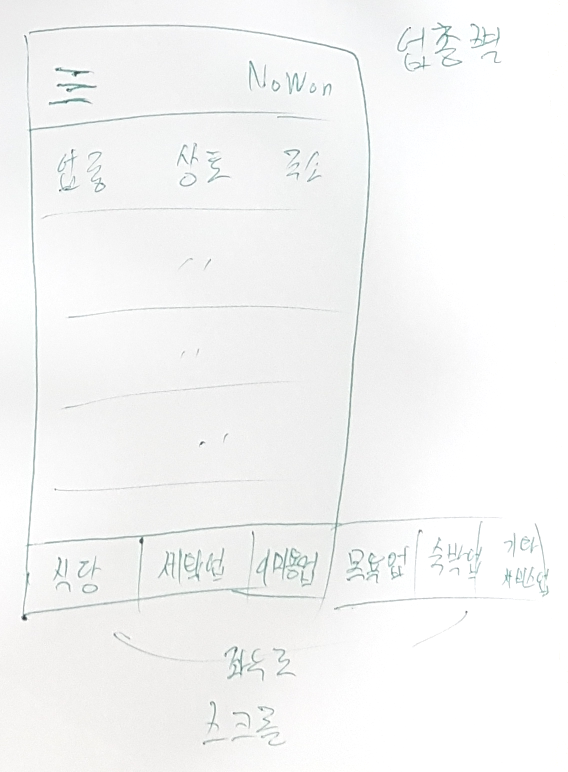 업종별
NoWon
업종 상호 주소
〃
〃
〃
식당 세탁업 이미용업 목욕업 숙박업 기타
서비스업
좌우로
스크롤